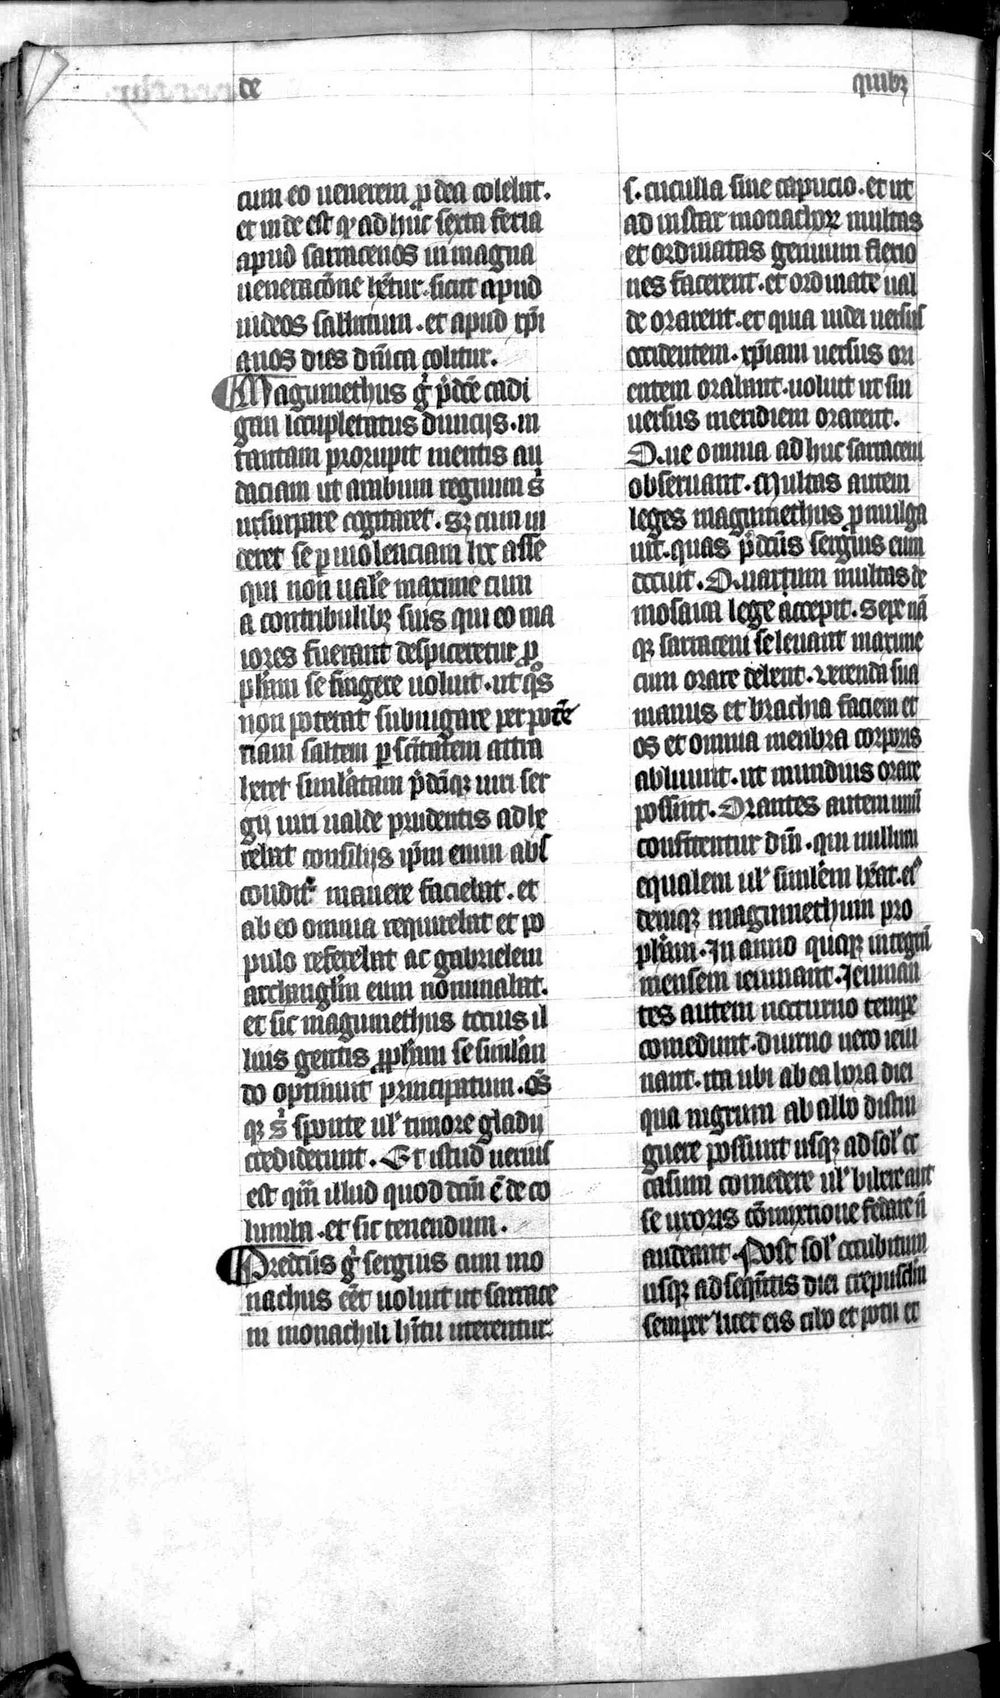 de
quibꝫ
cum eo uenerem ꝓ dea colebat.
et inde est ꝙ ad huc sexta feria
apud sarracenos in magna
ueneracōne hr̄etur. sicut apud
iudeos sabbatum. et apud xp̄i
anos dies dn̄ica colitur.
Magumethus gͥ p̄dc̄e cadi
gan locupletatus diuicijs. in
tantam prorupit mentis au
daciam ut ambium regnum sͥ
usurpare cogitaret. Sꝫ cum ui
deret se ꝑ uiolenciam hoc asse
qui non ualꝰe maxime cum
a contribulibꝫ suis qui eo ma
iores fuerant despiceretur ꝓ
ph̄am se fingere uoluit. ut qͦs
non poterat subiugare per potē
tiam saltem ꝑ sc̄itatem attra
heret simulatam p̄dc̄iqꝫ uiri ser
gij uiri ualde prudentis adhe
rebat consilijs ip̄m enim abs
condite manere faciebat. et
ab eo omnia requirebat et po
pulo referebat ac gabrielem
archangl̄m eum nōminabat.
et sic magumethus tocius il
lius gentis ꝓph̄am se simulan
do optinuit principatum. oēs
qꝫ sͥ sponte ulˀ timore gladij
crediderunt. Et istud uerius
est qm̄ illud quod dc̄m ē de co
lumba. et sic tenendum.
Predc̄us gͥ sergius cum mo
nachus eēt uoluit ut sarrace
ni monachili hītu uterentur.
s. cuculla sine capucio. et ut
ad instar monachoꝝ multas
et ordinatas genuum flexio
nes facerent. et ordinate ual
de orarent. et quia iudei uersus
occidentem. xp̄iani uersus ori
entem orabant. uoluit ut sui
uersus meridiem orarent.
Que omnia ad huc sarraceni
obseruant. Multas autem
leges magumethus ꝓmulga
uit. quas p̄dc̄us sergius eum
docuit. Quarum multas de
mosaica lege accepit. Sepe nā
qꝫ sarraceni se lauant maxime
cum orare debent. Verenda sua
manus et brachia faciem et
os et omnia menbra corporis
abluunt. ut mundius orare
possint. Orantes autem unū
confitentur dm̄. qui nullum
equalem ulˀ similem hēat. eiˀ
demqꝫ magumethum pro
ph̄am. In anno quoqꝫ integrū
mensem ieiunant. Ieiunan
tes autem nocturno tempe
comedunt. diurno uero ieiu
nant. ita ubi ab ea hora diei
qua nigrum ab albo distin
guere possunt usqꝫ ad solˀ oc
casum comedere ulˀ bibere aut
se uxoris cōmixtione fedare n̄
audeant. Post solˀ occubitum
usqꝫ ad sequentis diei crepusculū
semper licet eis cibo et potu et